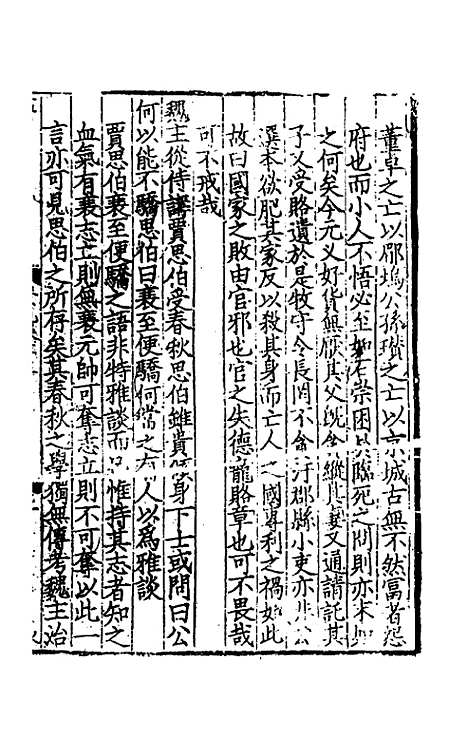 董卓之亡以郿塢公孫瓚之亡以京城古無不然富者怨
府也而小人不悟必至如石崇困臨死之問則亦末
之何矣今元乂好貨無厭其父既貪縱其妻又通請託其
子又受賂遺於是牧守令長罔不貪汙郡縣小吏亦非公
選本欲肥其家反以殺其身而亡人之國專利之禍如此
故曰國家之敗由官邪也官之失德寵賂章也可不畏哉
可不戒哉
魏主從侍講賈思伯受春秋思伯雖貴傾身下士或問曰公
何以能不驕思伯曰衰至便驕何常之有人以為雅談
賈思伯衰至便驕之語非特雅談而已惟持其志者知之
血氣有衰志立則無衰元帥可奪志立則不可奪以此一
言亦可見思伯之所存矣其春秋之學獨無傳考魏主治